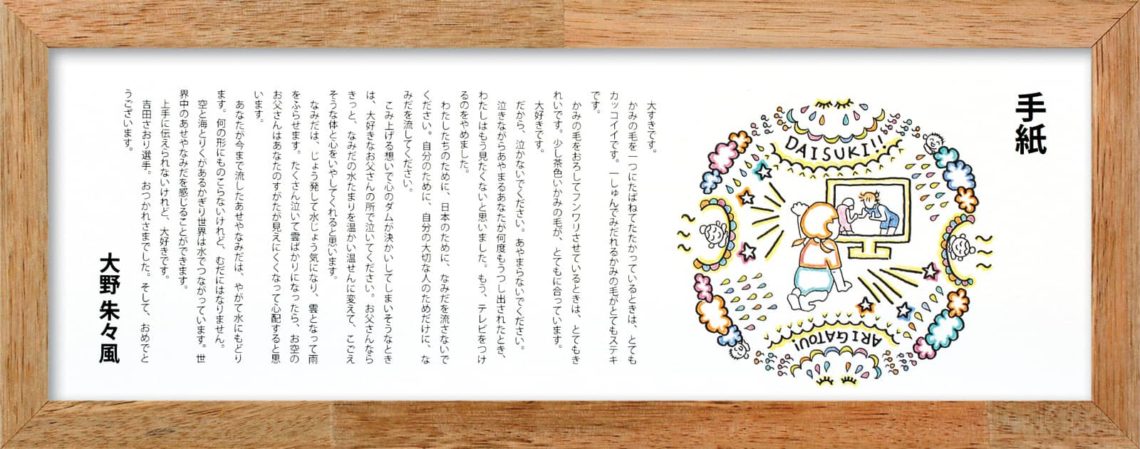 手紙
DAISUKI!!
ARIGATOU!
大すきです。
かみの毛を一つにたばねてたたかっているときは、とても
カッコイイです。一しゅんでみだれるかみの毛がとてもステキ
です。
かみの毛をおろしてフンワリさせているときは、とてもき
れいです。少し茶色いかみの毛が、とてもに合っています。
大好きです。
だから、泣かないでください。あやまらないでください。
泣きながらあやまるあなたが何度もうつし出されたとき、
わたしはもう見たくないと思いました。もう、テレビをつけ
るのをやめました。
わたしたちのために、日本のために、なみだを流さないで
ください。自分のために、自分の大切な人のためだけに、な
みだを流してください。
こみ上げる想いで心のダムが決かいしてしまいそうなとき
は、大好きなお父さんの所で泣いてください。お父さんなら
きっと、なみだの水たまりを温かい温せんに変えて、こごえ
そうな体と心をいやしてくれると思います。
なみだは、じょう発して水じょう気になり、雲となって雨
をふらせます。たくさん泣いて雲ばかりになったら、お空の
お父さんはあなたのすがたが見えにくくなって心配すると思
います。
あなたが今まで流したあせやなみだは、やがて水にもどり
ます。何の形にものこらないけれど、むだにはなりません。
空と海とりくがあるかぎり世界は水でつながっています。世
界中のあせやなみだを感じることができます。
上手に伝えられないけれど、大好きです。
吉田さおり選手。おつかれさまでした。そして、おめでと
うございます。
大野 朱々風